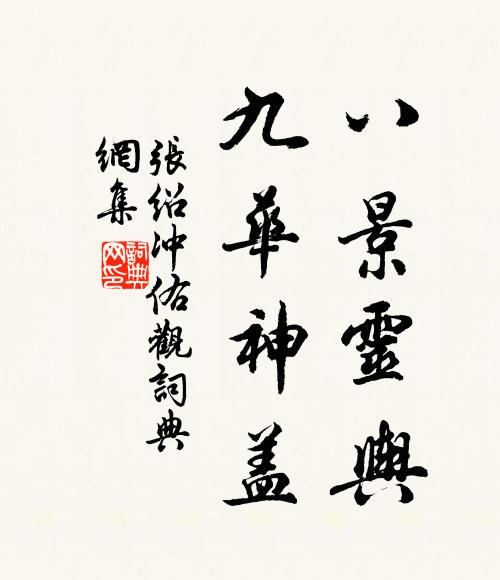 八景靈輿
九華神盖
張紹沖佑觀詞典
網集
詞典
网印